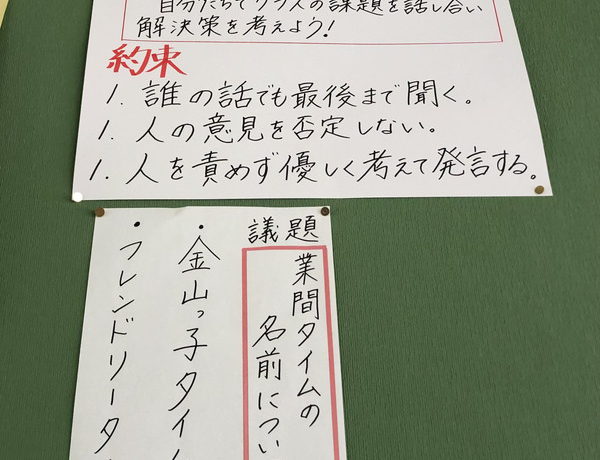 自分たちでクラスの課題を話し合い
解決策を考えよう!
約束
1. 誰の話でも最後まで聞く。
1. 人の意見を否定しない。
1. 人を責めず優しく考えて発言する。
議題
業間タイムの
名前につい
・金山っ子タイ
・フレンドリータ